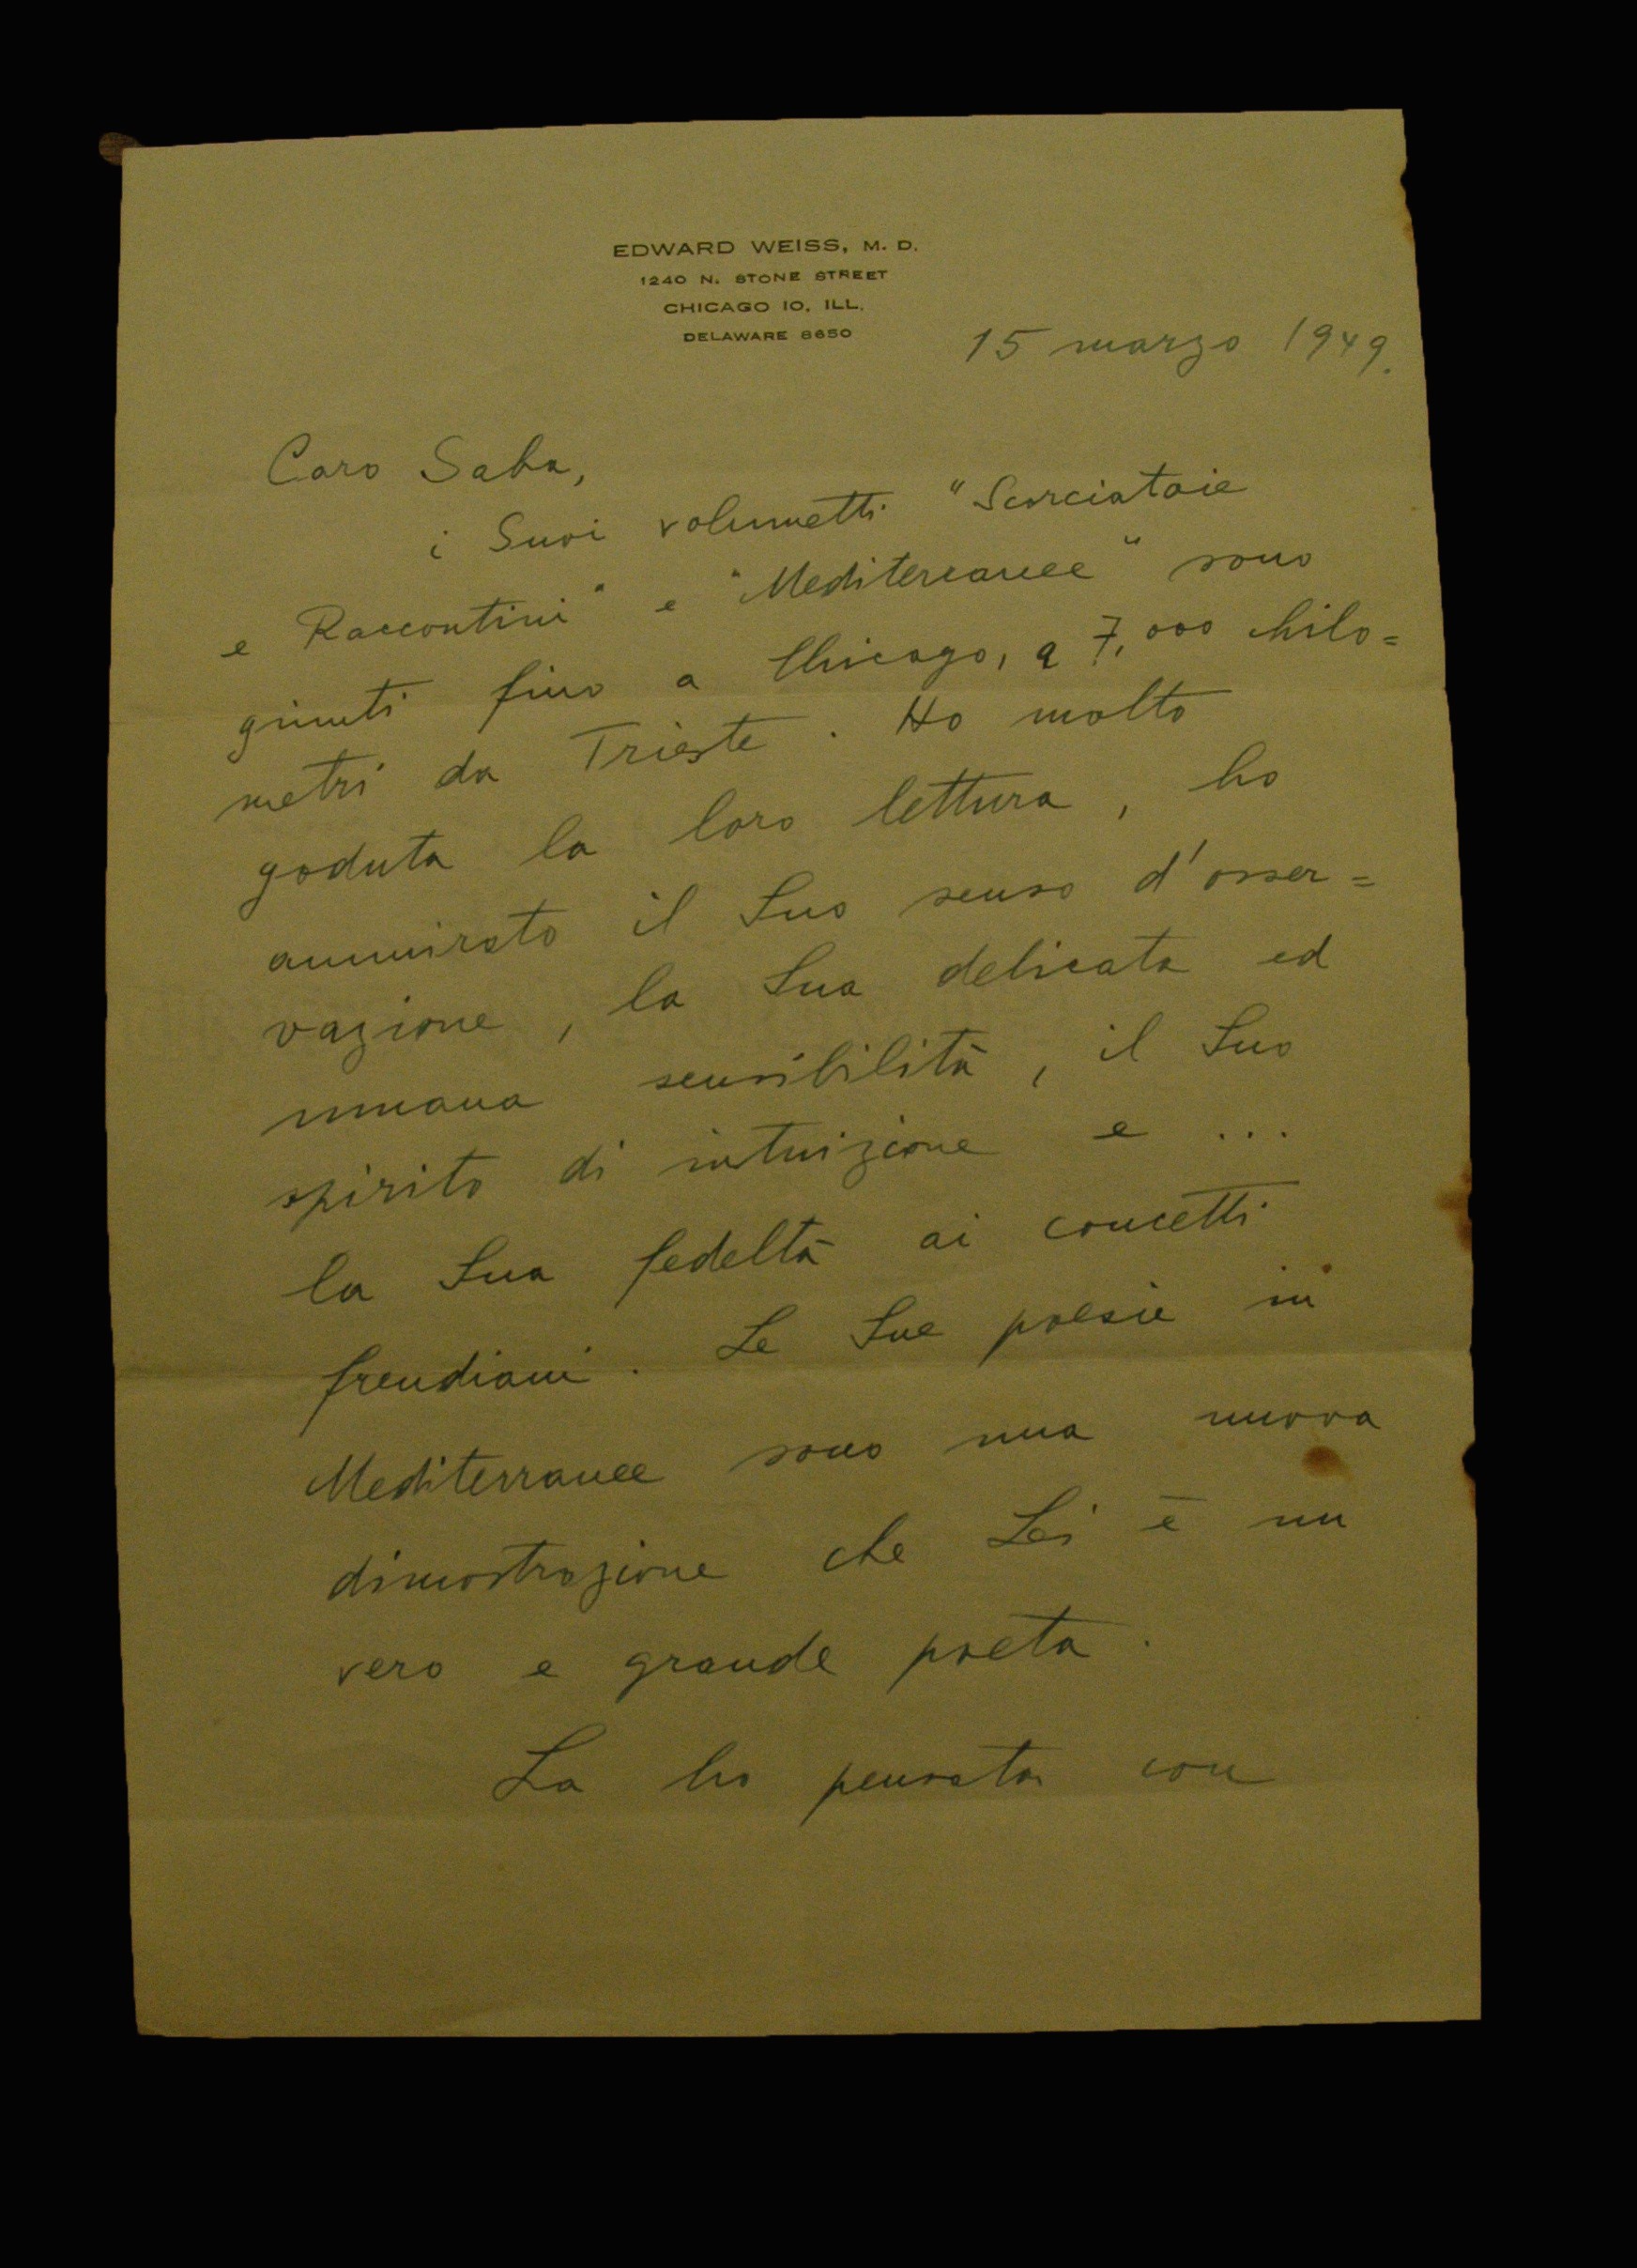 EDWARD WEISS, M. D.
1240 N. STONE STREET
CHICAGO 10, ILL.
DELAWARE 8650
15 marzo 1949.
Caro Saba,
i Suoi volumetti "Scorciatoie
e Raccontini" e "Mediterranee" sono
giunti fino a Chicago, a 7,000 chilo=
metri da Trieste. Ho molto
goduta la loro lettura, ho
ammirato il Suo senso d'osser=
vazione, la Sua delicata ed
umana sensibilità, il Suo
spirito di intuizione e ...
la Sua fedeltà ai concetti
freudiani. Le Sue poesie in
Mediterranee sono una nuova
dimostrazione che Lei è un
vero e grande poeta.
La ho pensata con